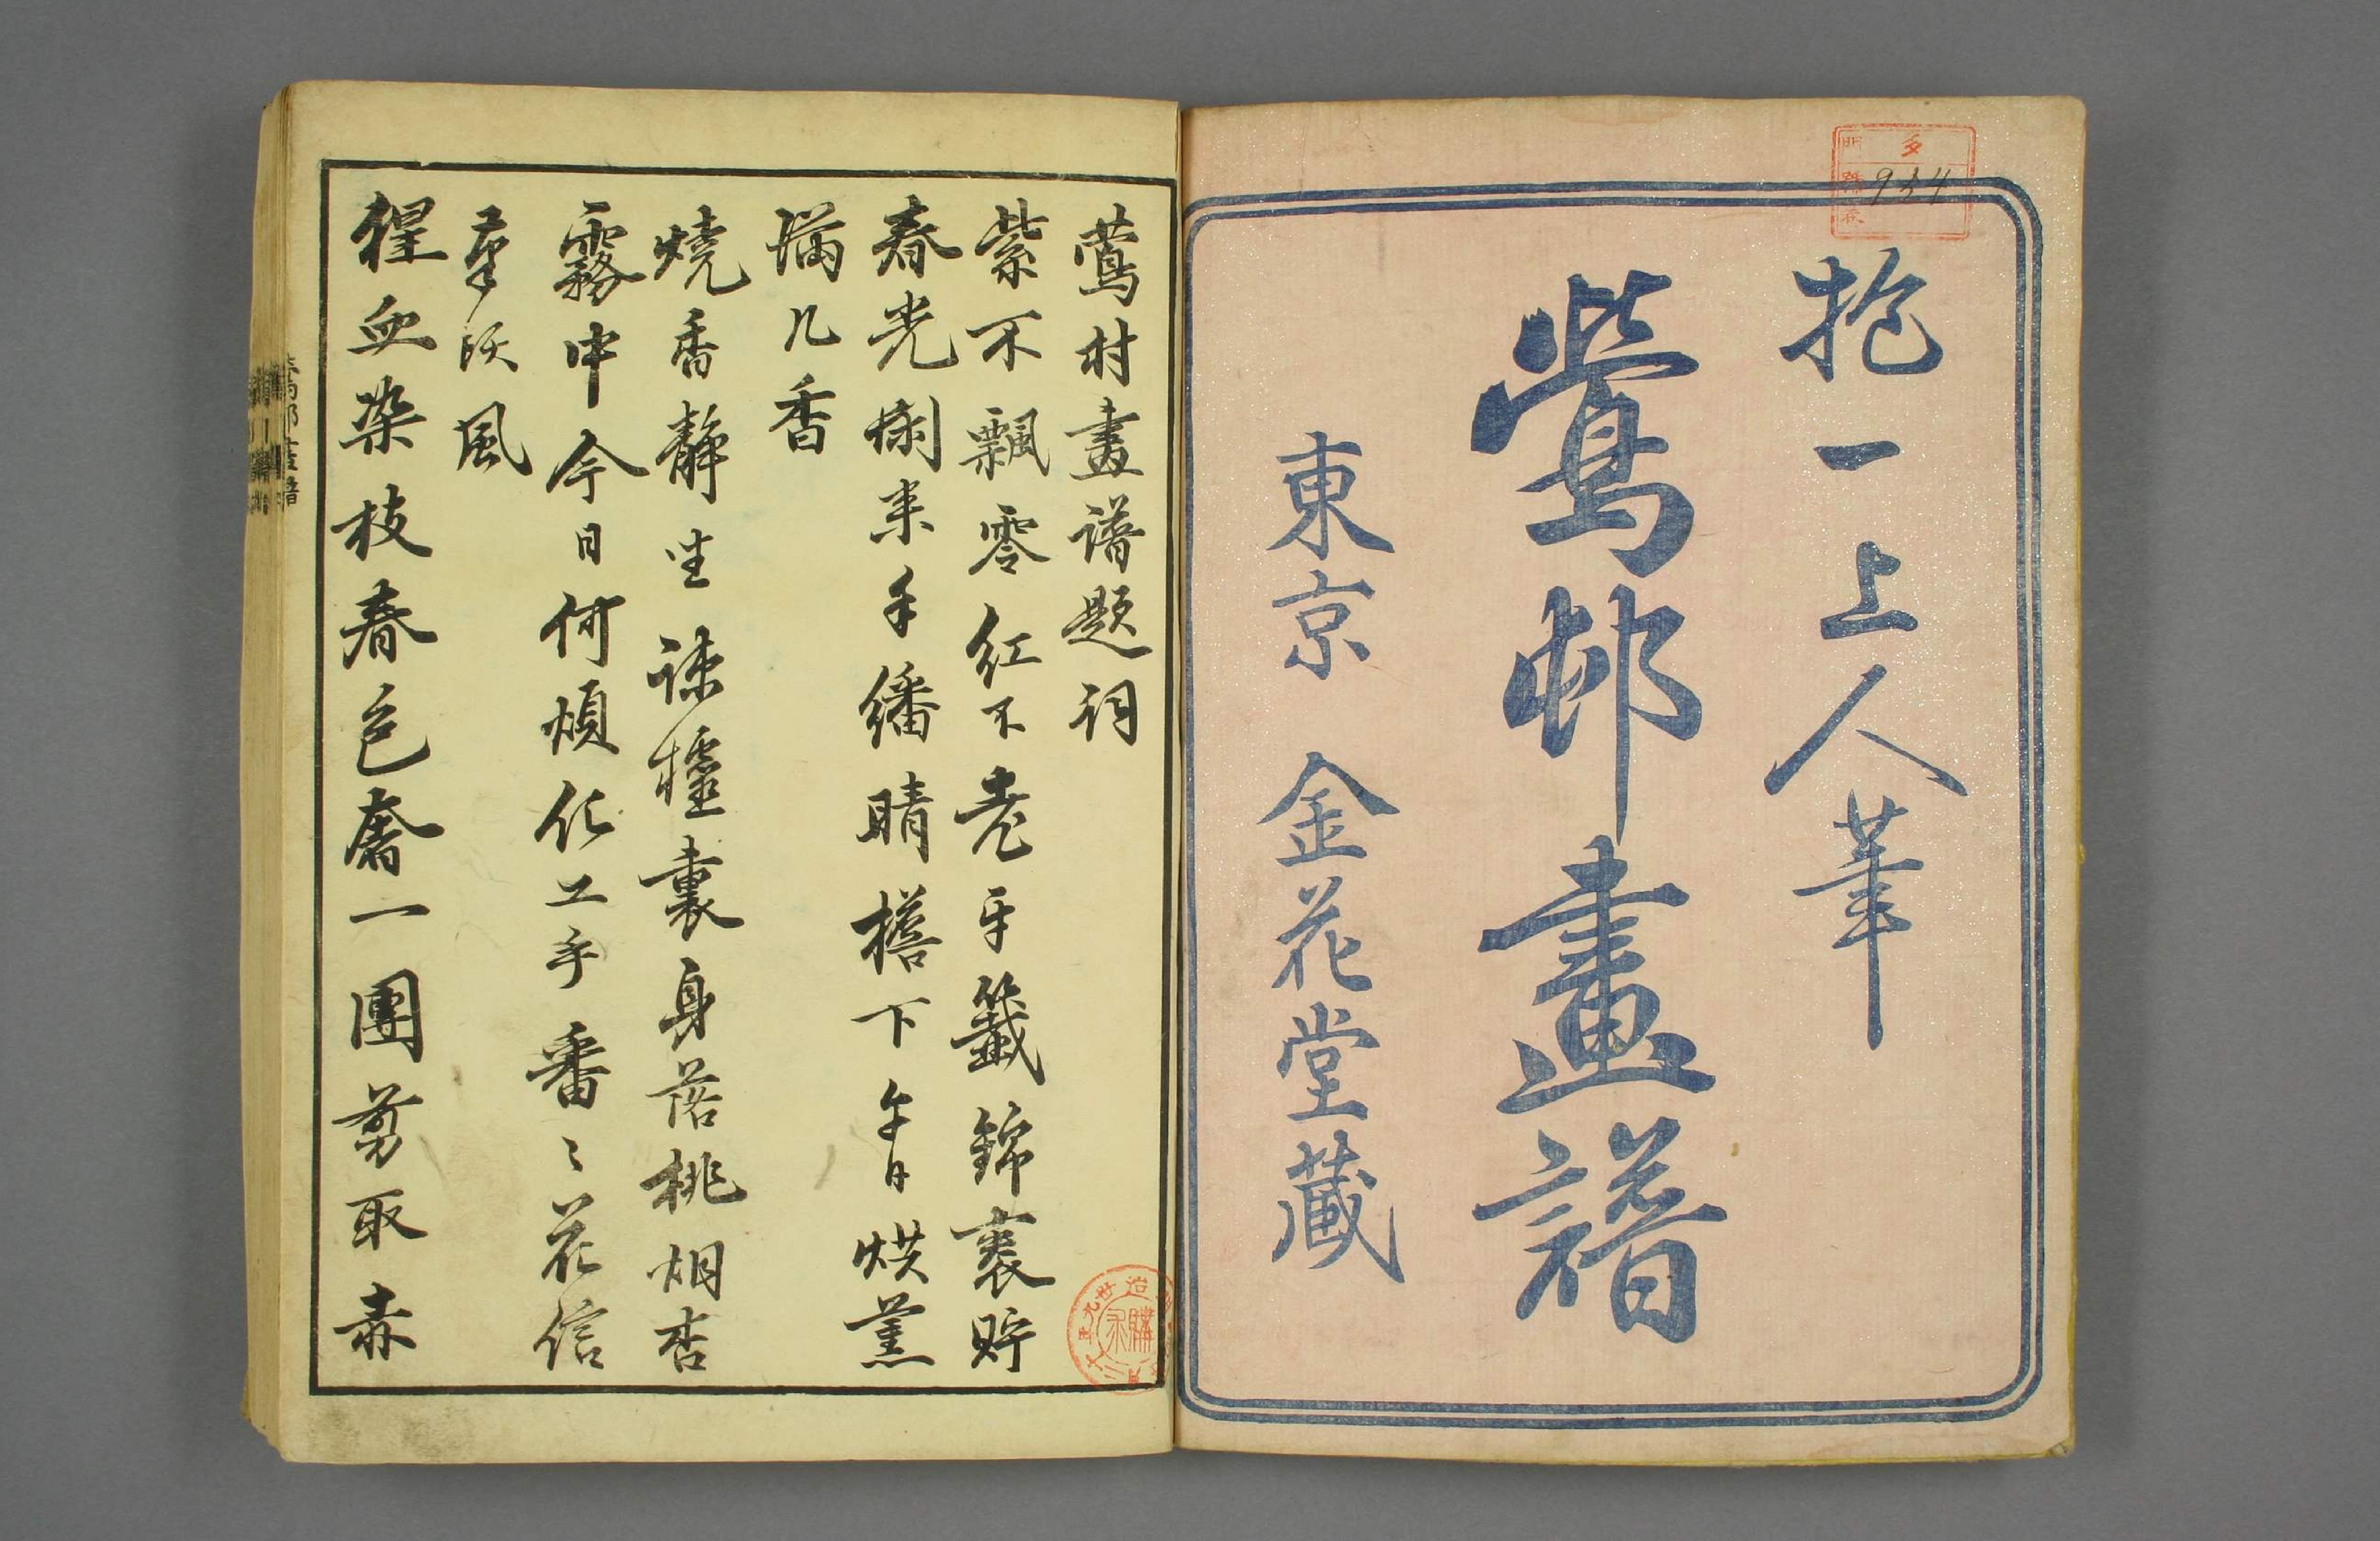 抱一上人筆
鶯邨畫譜
東京 金花堂藏
934
鶯村畫譜題詞
紫不飄零紅不老牙籤錦裹貯
春光閑来手繙晴檐下午日烘薰
満几香
燒香靜坐讀裏身落桃烟杏
霧中今日何煩化工手番〻花信
風
猩血染枝春色奢一團剪取赤